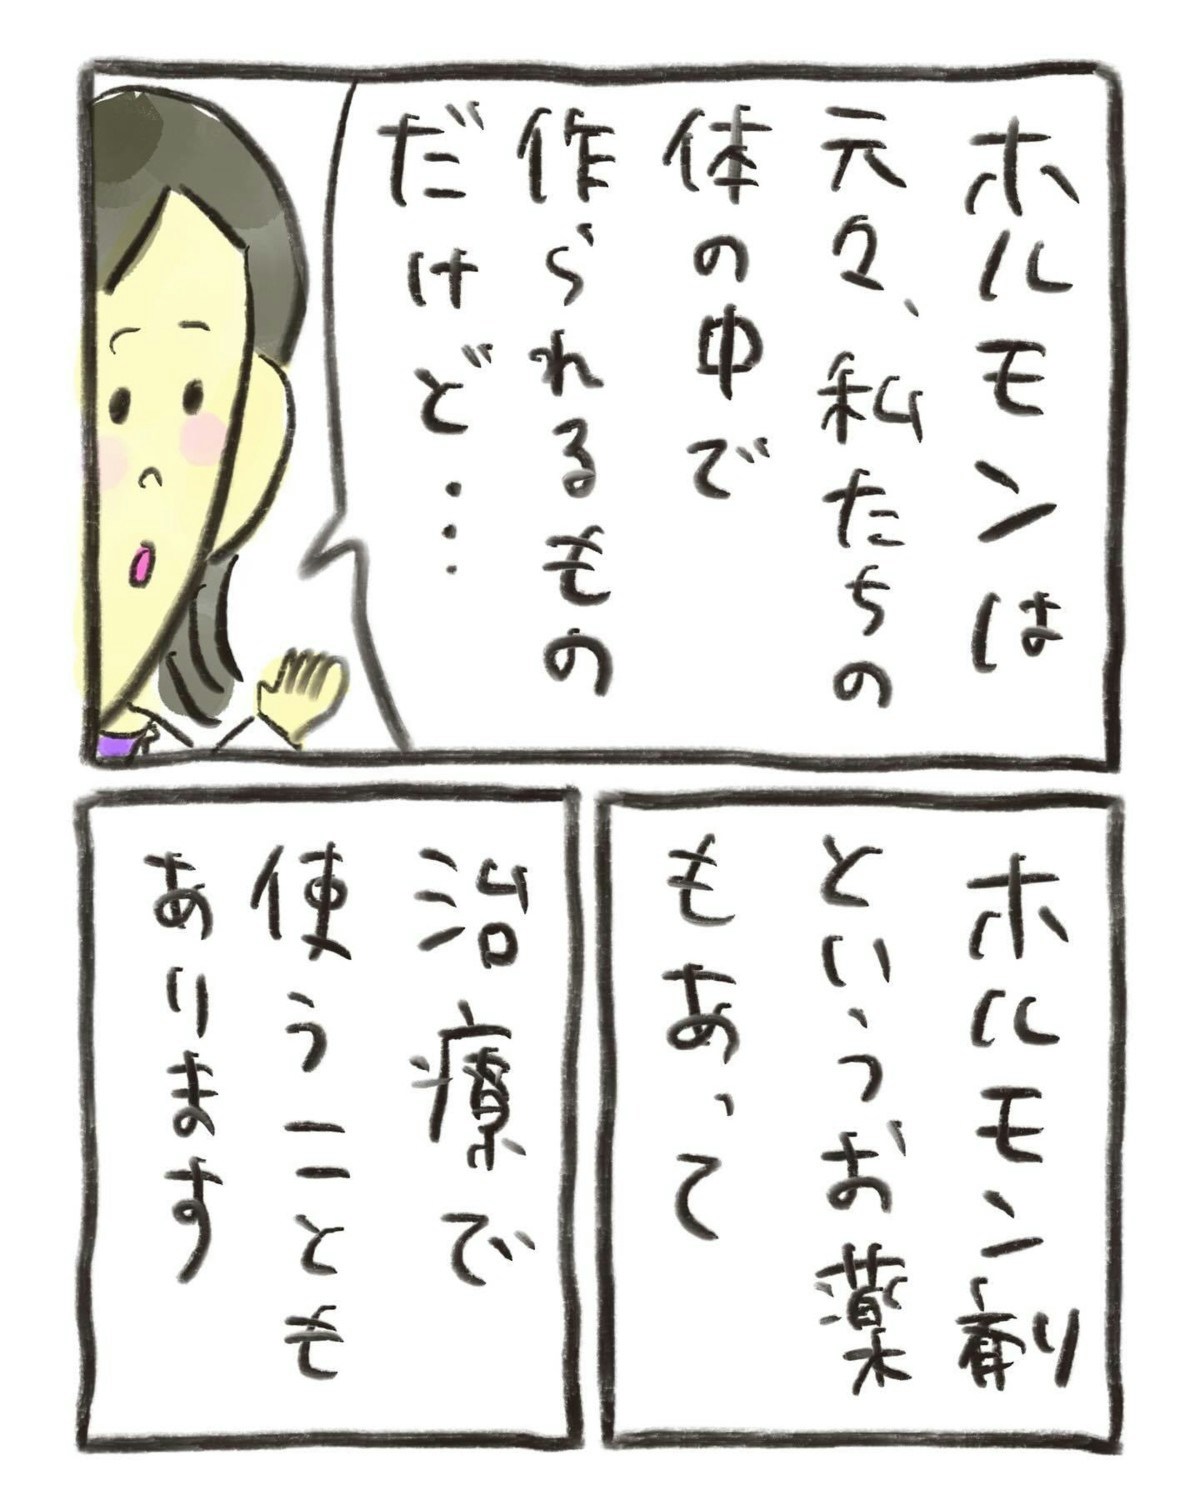 ホルモンは
元々、私たちの
体の中で
作られるもの
だけど…
ホルモン剤
というお薬
もあって
治療で
使うことも
あります